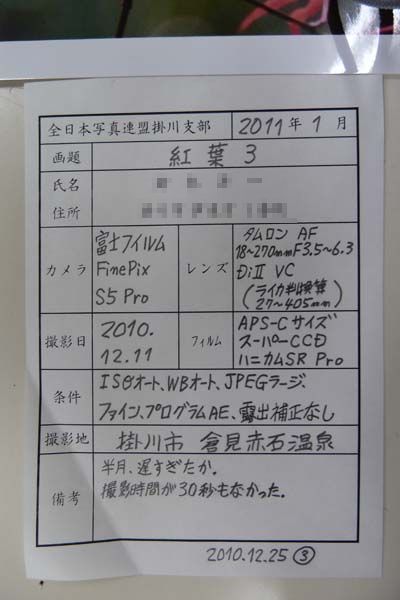 全日本写真連盟掛川支部 2011年1月
画題 紅葉3
氏名
住所
カメラ
富士フイルム
FinePix
S5 Pro
レンズ
タムロン AF
18~270mmF3.5~6.3
DiⅡ VC
(ライカ判換算
27~405mm)
撮影日
2010.
12.11
フィルム
APS-Cサイズ
スーパーCCD
ハニカムSR Pro
条件
ISOオート、WBオート、JPEGラージ、
ファイン、プログラムAE、露出補正なし
撮影地 掛川市 倉見赤石温泉
備考
半月、遅すぎたか。
撮影時間が30秒もなかった。
2010.12.25 ③